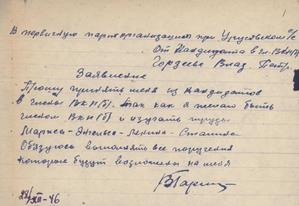 В первичную парторганизацию при
От Кандидата в чл. ВКП(б)
Гордеева Влад. Петр.
Заявление
Прошу принять меня из кандидатов
в члены ВКП(б). Так как я желаю быть
членом ВКП(б) и изучать труды
Маркса-Энгельса-Ленина-Сталина
Обязуюсь выполнять все поручения
которые будут возложены на меня
46